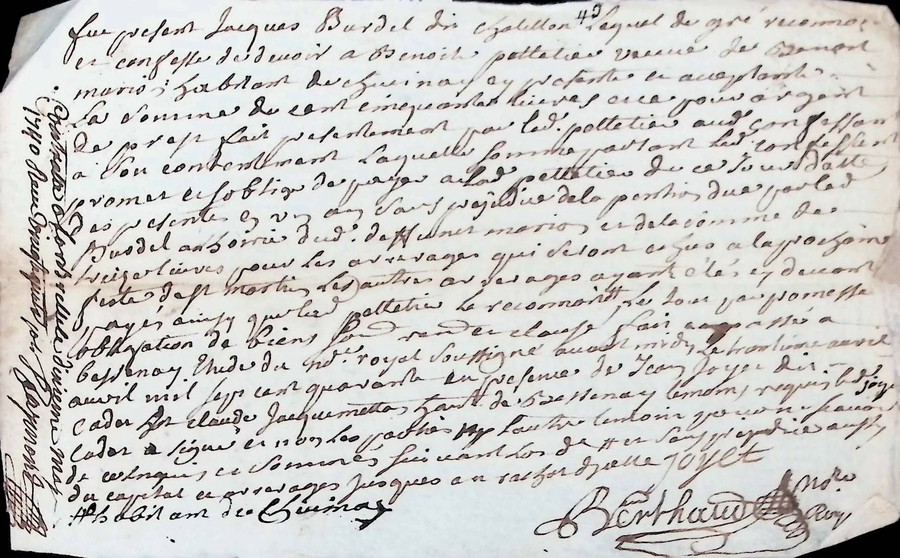 fut present Jacques Burdel dit Chatillon Lequel de gré reconnoi
et confesse de devoir a Benoit pelletier veuve de Benoit
marion habitant de chevinay cy presente et acceptante
La somme de cent cinquante Livres et ce pour argent
de prest fait presentement par lad. pelletier aud. confessant
a son contentement Laquelle somme partant led. confessant
promet et soblige de payer a Lad. pelletier de ce jourd'
des presentes en un an sans prejudice de la pention due par led
Burdel de marion et de la somme de
treize Livres pour Les arrerages qui seront echus a la prochaine
feste de st martin Les autres arrerages ayant étés cy devant
payés ainsy que lad. pelletier Le reconnait Le tout par promesse
obligation de biens clause fait et passé a
bessenay Etude du no.re royal soussigné avant midy Le trentieme avril
avril mil sept cent quarante en presence de Jean Joyet dit
cadet et claude Jacquemetton de Bessenay temoins requis led. joyet
cadet a signé et non les parties ny l'autre temoin pour ne scavoir
de ce enquis et sommés suivant Lord. et sans prejudice aussy
du capital et arrerages jusques a
habitant de Chevinay
Joyet
Berthaud no.re Roy
49
Controllé à Larbresle
1740 Reçu